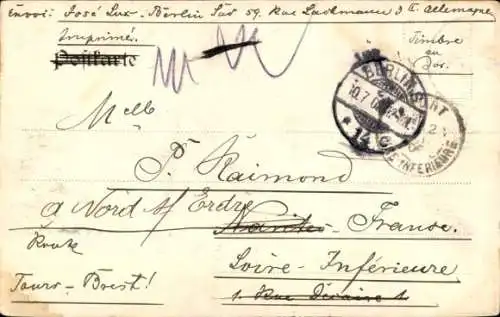 Envoi: José Lux - Berlin Süd 59. Rue Lachmann 3 II. Allemagne
Imprimés.
Postkarte
Timbre
au
Dos.
BERLIN
10.7.0
* 14 c
INFERIEURE
Melle
P. Raimond
à Nord s/ Erdre
Nantes - France.
Route
Loire - Inférieure
Tours - Brest!
1. Rue